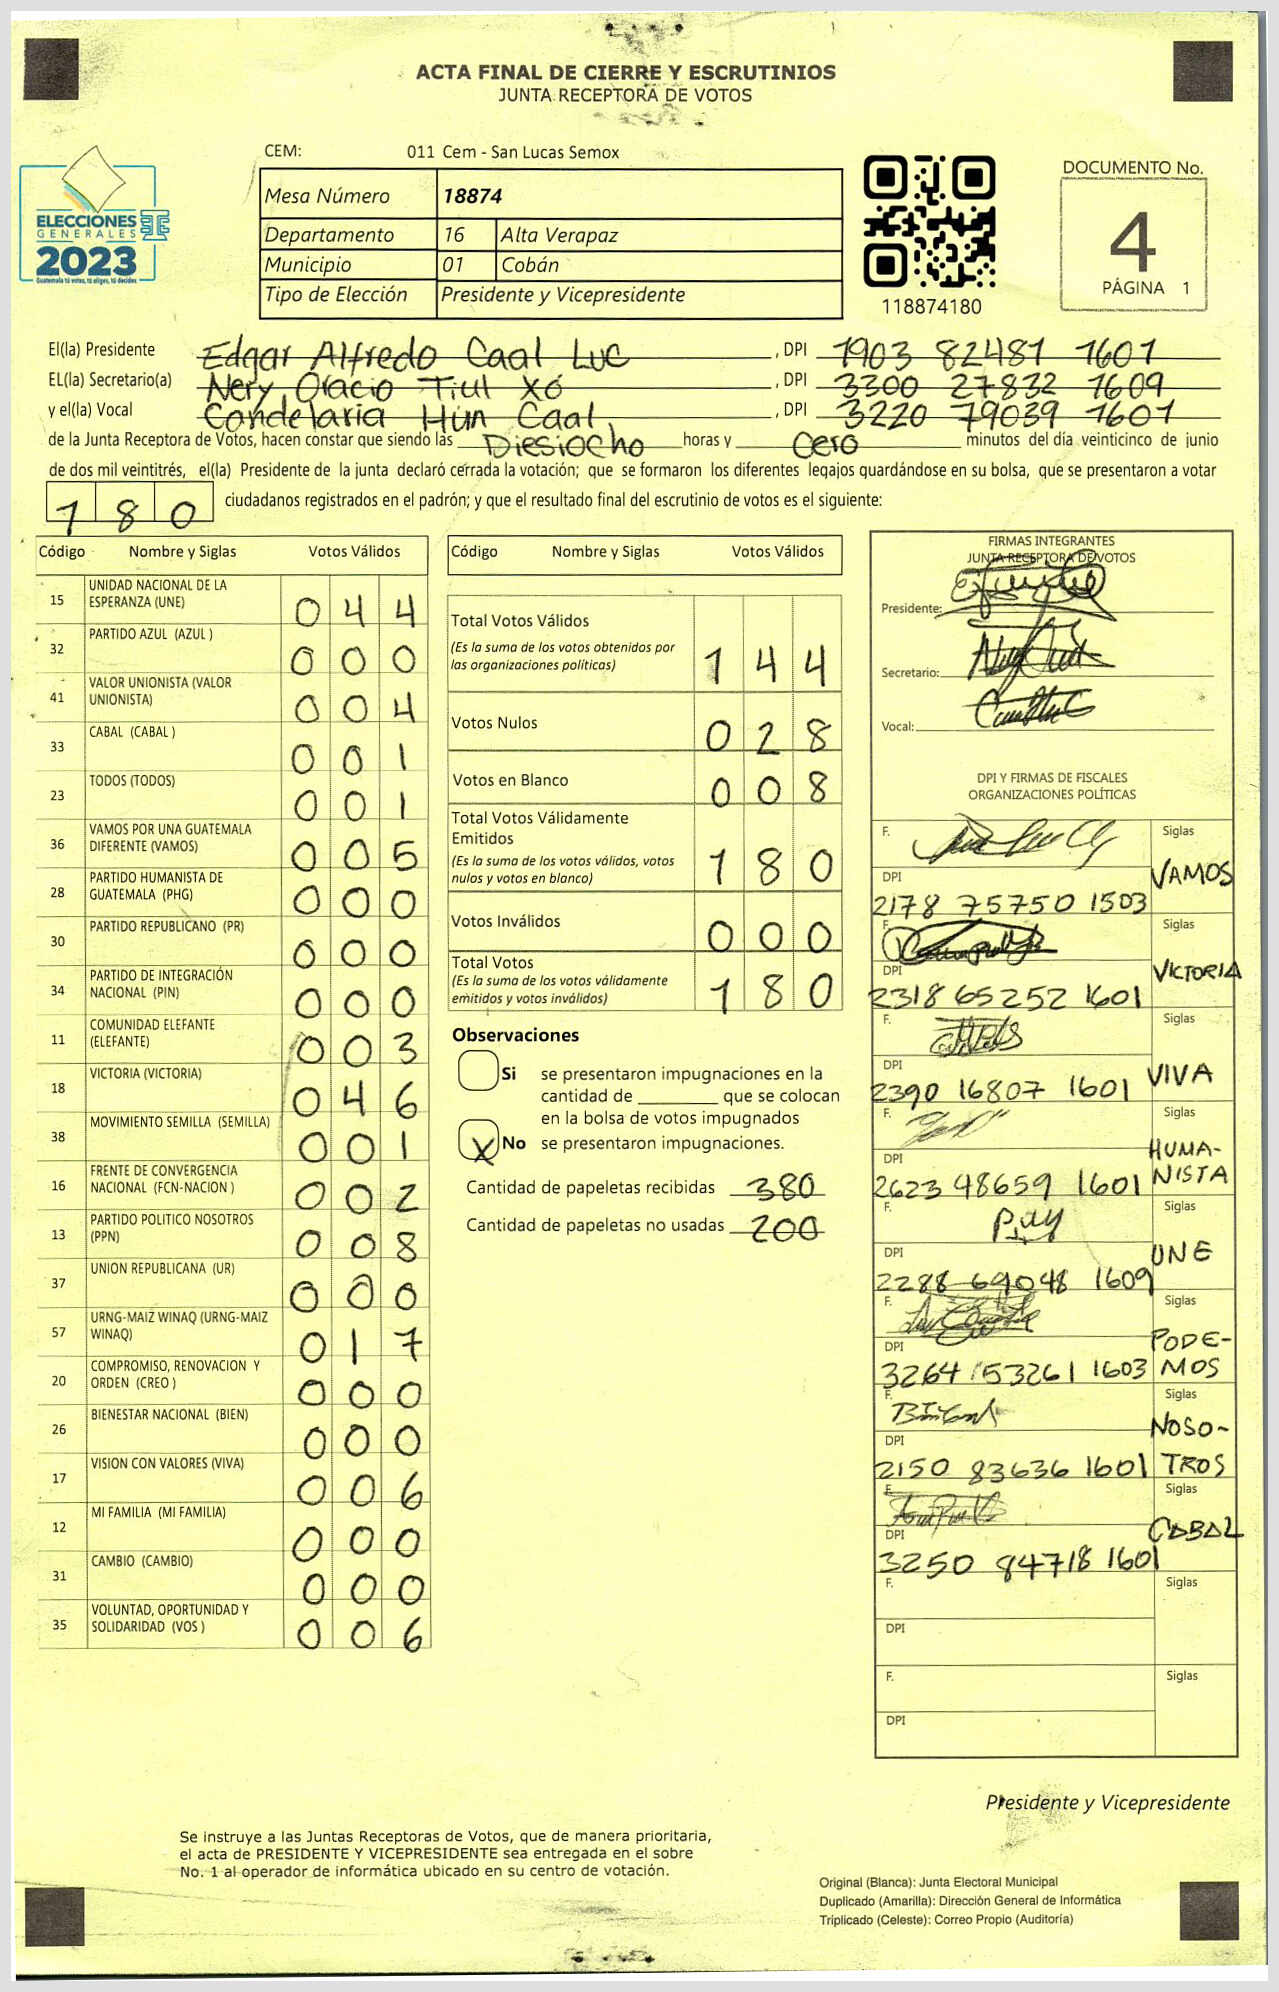 ACTA FINAL DE CIERRE Y ESCRUTINIOS
JUNTA RECEPTORA DE VOTOS
CEM: 011 Cem - San Lucas Semox
ELECCIONES
GENERALES
2023
Guatemala tú votes, tú eliges, tú decides
Mesa Número 18874
Departamento 16 Alta Verapaz
Municipio 01 Cobán
Tipo de Elección Presidente y Vicepresidente
118874180
DOCUMENTO No.
4
PÁGINA 1
El(la) Presidente Edgar Alfredo Caal Luc , DPI 1903 82481 1601
EL(la) Secretario(a) Nery Oracio Tiul Xó , DPI 3300 27832 1609
y el(la) Vocal Candelaria Hún Caal , DPI 3220 79039 1601
de la Junta Receptora de Votos, hacen constar que siendo las Diesiocho horas y Cero minutos del día veinticinco de junio
de dos mil veintitrés, el(la) Presidente de la junta declaró cerrada la votación; que se formaron los diferentes legajos guardándose en su bolsa, que se presentaron a votar
180 ciudadanos registrados en el padrón; y que el resultado final del escrutinio de votos es el siguiente:
Código Nombre y Siglas Votos Válidos
15 UNIDAD NACIONAL DE LA ESPERANZA (UNE) 044
32 PARTIDO AZUL (AZUL ) 000
41 VALOR UNIONISTA (VALOR UNIONISTA) 004
33 CABAL (CABAL ) 001
23 TODOS (TODOS) 001
36 VAMOS POR UNA GUATEMALA DIFERENTE (VAMOS) 005
28 PARTIDO HUMANISTA DE GUATEMALA (PHG) 000
30 PARTIDO REPUBLICANO (PR) 000
34 PARTIDO DE INTEGRACIÓN NACIONAL (PIN) 000
11 COMUNIDAD ELEFANTE (ELEFANTE) 003
18 VICTORIA (VICTORIA) 046
38 MOVIMIENTO SEMILLA (SEMILLA) 001
16 FRENTE DE CONVERGENCIA NACIONAL (FCN-NACION ) 002
13 PARTIDO POLITICO NOSOTROS (PPN) 008
37 UNION REPUBLICANA (UR) 000
57 URNG-MAIZ WINAQ (URNG-MAIZ WINAQ) 017
20 COMPROMISO, RENOVACION Y ORDEN (CREO ) 000
26 BIENESTAR NACIONAL (BIEN) 000
17 VISION CON VALORES (VIVA) 006
12 MI FAMILIA (MI FAMILIA) 000
31 CAMBIO (CAMBIO) 000
35 VOLUNTAD, OPORTUNIDAD Y SOLIDARIDAD (VOS ) 006
Código Nombre y Siglas Votos Válidos
Total Votos Válidos
(Es la suma de los votos obtenidos por
las organizaciones políticas) 144
Votos Nulos 028
Votos en Blanco 008
Total Votos Válidamente
Emitidos
(Es la suma de los votos válidos, votos
nulos y votos en blanco) 180
Votos Inválidos 000
Total Votos
(Es la suma de los votos válidamente
emitidos y votos inválidos) 180
Observaciones
Si se presentaron impugnaciones en la
cantidad de ________ que se colocan
en la bolsa de votos impugnados
X No se presentaron impugnaciones.
Cantidad de papeletas recibidas 380
Cantidad de papeletas no usadas 200
FIRMAS INTEGRANTES
JUNTA RECEPTORA DE VOTOS
Presidente:
Secretario:
Vocal:
DPI Y FIRMAS DE FISCALES
ORGANIZACIONES POLÍTICAS
F. Siglas
DPI VAMOS
2178 75750 1503
F. Siglas
DPI VICTORIA
2318 65252 1601
F. Siglas
DPI VIVA
2390 16807 1601
F. Siglas
DPI HUMA-
2623 48659 1601 NISTA
F. Siglas
DPI UNE
2288 69048 1609
F. Siglas
DPI PODE-
3264 53261 1603 MOS
F. Siglas
DPI NOSO-
2150 83636 1601 TROS
F. Siglas
DPI CABAL
3250 84718 1601
F. Siglas
DPI
F. Siglas
DPI
Presidente y Vicepresidente
Se instruye a las Juntas Receptoras de Votos, que de manera prioritaria,
el acta de PRESIDENTE Y VICEPRESIDENTE sea entregada en el sobre
No. 1 al operador de informática ubicado en su centro de votación.
Original (Blanca): Junta Electoral Municipal
Duplicado (Amarilla): Dirección General de Informática
Triplicado (Celeste): Correo Propio (Auditoría)